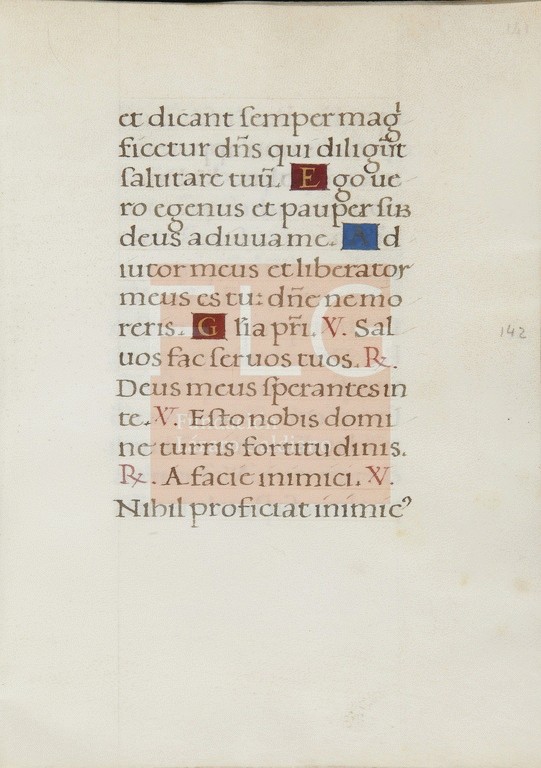 141
et dicant semper mag
ficetur dñs qui diligũt
salutare tuũ. Ego ue
ro egenus et pauper sũ
deus adiuua me. Ad
iutor meus et liberator
meus es tu: dñe ne mo
reris. Glia pr̃i. V. Sal
uos fac seruos tuos. R.
Deus meus sperantes in
te. V. Esto nobis domi
ne turris fortitudinis.
R. A facie inimici. V.
Nihil proficiat inimic⁹
142
FLG